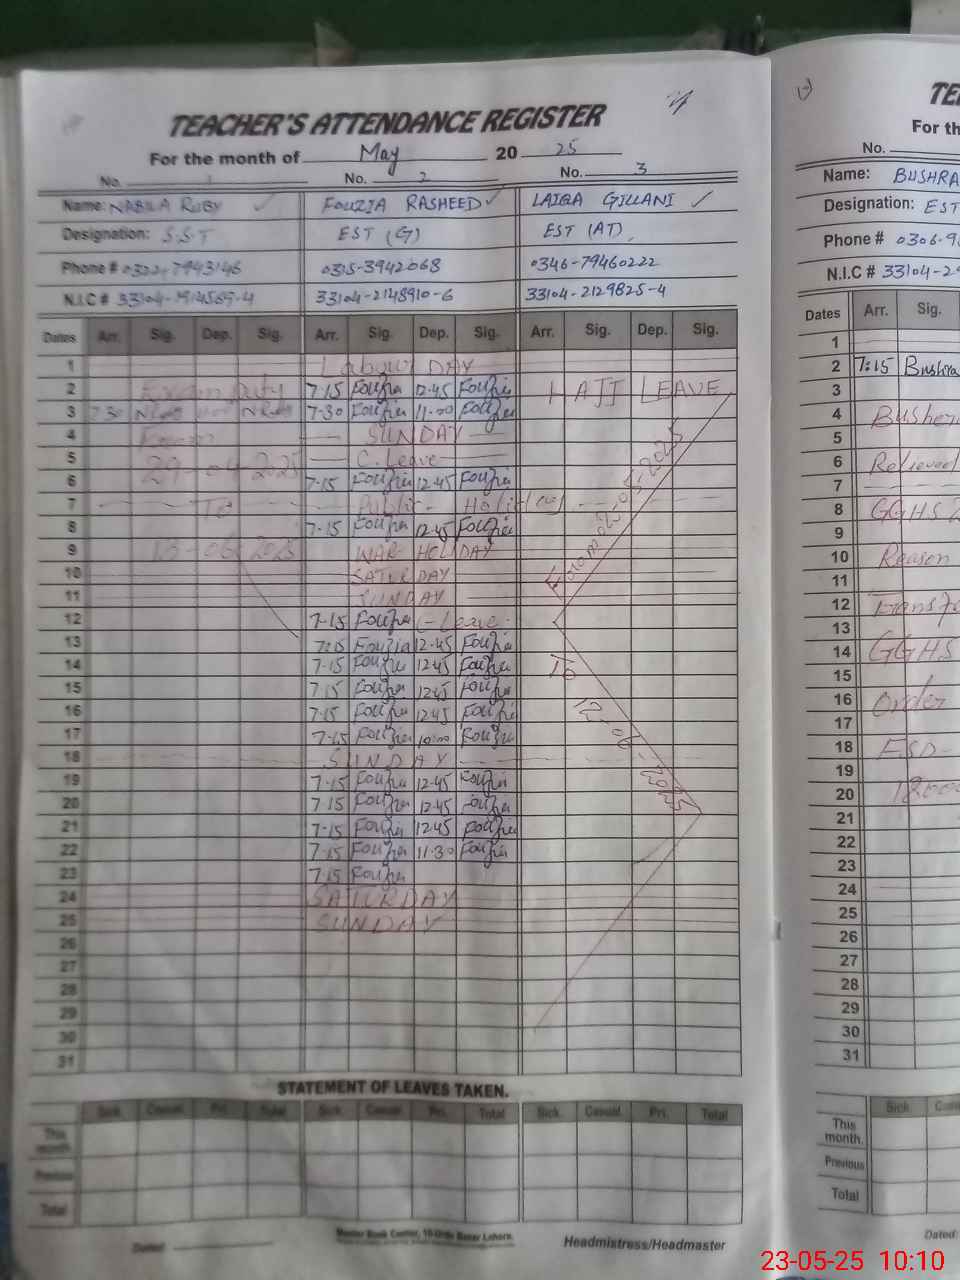 TEACHER'S ATTENDANCE REGISTER
For the month of May 20 25
No. 1 No. 2 No. 3
Name: NABILA RUBY FOUZIA RASHEED LAIQA GILLANI
Designation: S.S.T EST (G) EST (AT)
Phone # 0315-3942068 0346-79460222
N.I.C # 33104-2148910-6 33104-2129825-4
Dates Arr. Sig. Dep. Sig. Arr. Sig. Dep. Sig. Arr. Sig. Dep. Sig.
1 Labour DAY
2 7-15 Fouzia 12-45 Fouzia HAJJ LEAVE
3 7-30 Fouzia 11-00 Fouzia
4 SUNDAY
5 29-04-2025 C.Leave
6 7-15 Fouzia 12-45 Fouzia
7 To Public - Holiday
8 7-15 Fouzia 12-45 Fouzia
9 WAR HOLIDAY
10 SATURDAY
11 SUNDAY
12 7-15 Fouzia C-Leave
13 7:15 Fouzia 12-45 Fouzia
14 7-15 Fouzia 12-45 Fouzia
15 7-15 Fouzia 12-45 Fouzia
16 7-15 Fouzia 12-45 Fouzia
17 7-15 Fouzia 10:00 Fouzia
18 SUNDAY
19 7-15 Fouzia 12-45 Fouzia
20 7-15 Fouzia 12-45 Fouzia
21 7-15 Fouzia 12-45 Fouzia
22 7-15 Fouzia 11-30 Fouzia
23 7-15 Fouzia
24 SATURDAY
25 SUNDAY
26
27
28
29
30
31
From 02-05-2025
To
12-06-2025
STATEMENT OF LEAVES TAKEN.
Sick. Casual. Pri. Total Sick. Casual. Pri. Total Sick. Casual. Pri. Total
This month.
Previous
Total
Dated
Headmistress/Headmaster
TE
For th
No.
Name: BUSHRA
Designation: EST
Phone # 0306-9
N.I.C # 33104-2
Dates Arr. Sig.
1
2 7:15 Bushra
3
4
5
6 Relieved
7
8 GGHS
9
10 Reason
11
12
13
14 GGHS
15
16 Order
17
18
19
20
21
22
23
24
25
26
27
28
29
30
31
Sick
This month.
Previous
Total
Dated:
23-05-25 10:10